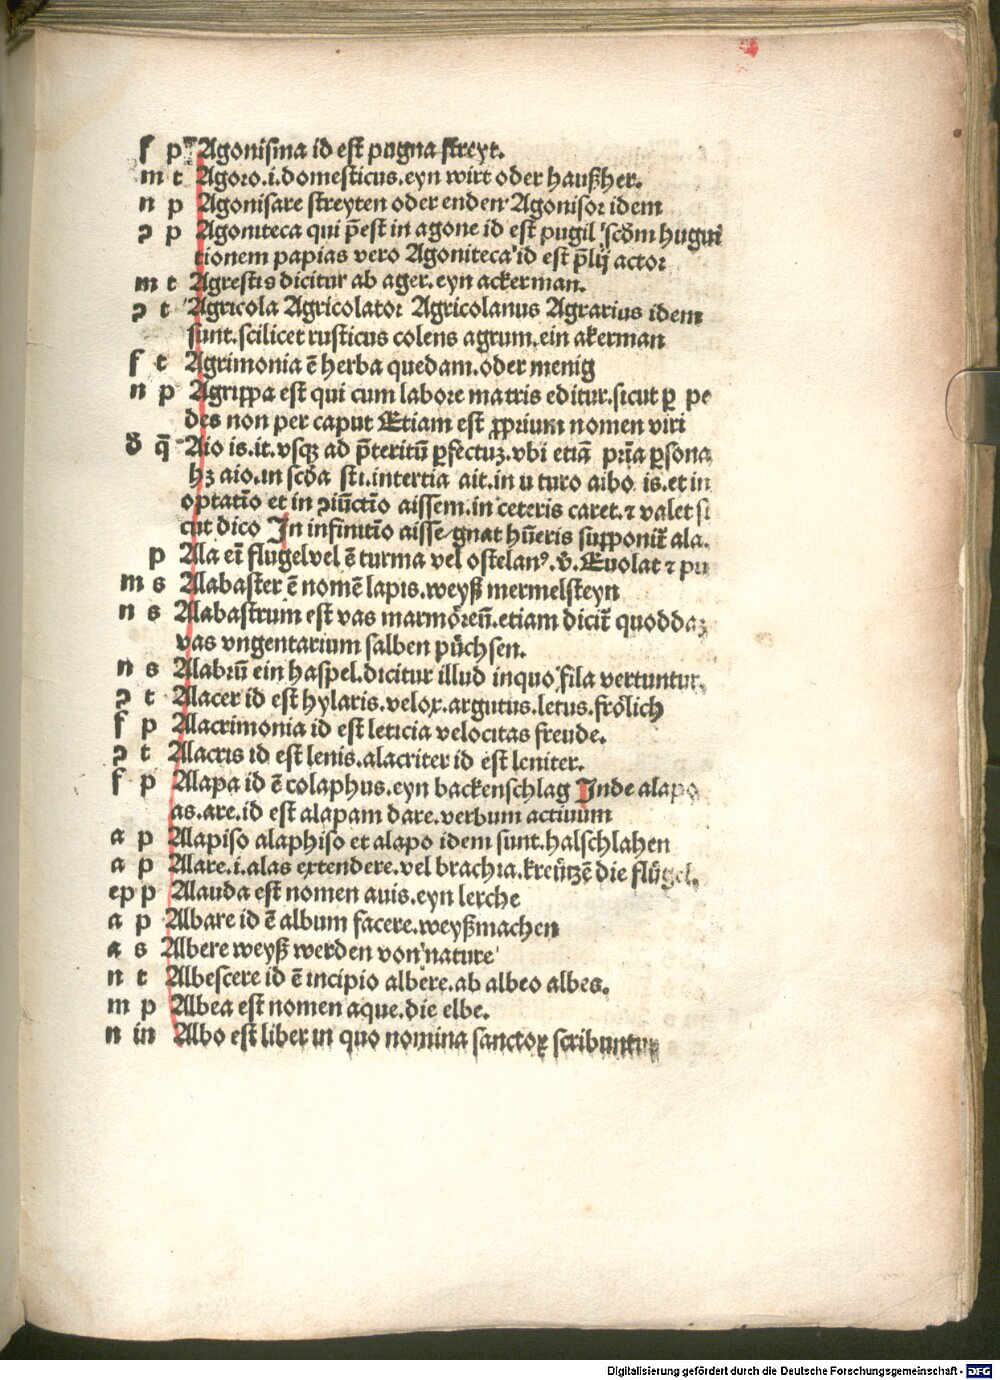 f p Agonisma id est pugna streyt.
m t Agoro.i.domesticus.eyn wirt oder haußher.
n p Agonisare streyten oder enden Agonisor idem
ɔ p Agoniteca qui p̄est in agone id est pugil scd̄m hugui
tionem papias vero Agoniteca id est p̄lij actor
m t Agrestis dicitur ab ager.eyn ackerman.
ɔ t Agricola Agricolator Agricolanus Agrarius idem
sunt.scilicet rusticus colens agrum.ein akerman
f t Agrimonia ē herba quedam.oder menig
n p Agrippa est qui cum labore matris editur.sicut ꝑ pe
des non per caput Etiam est ꝓprium nomen viri
δ q̄ Aio is.it.vsqꝫ ad p̄teritū ꝑfectuꝫ.vbi etiā pr̄ia ꝑsona
hꝫ aio.in scd̄a sti.intertia ait.in u turo aibo is.et in
optatīo et in ɔiūctīo aissem.in ceteris caret.⁊ valet si
cut dico In infinitīo aisse gnat hūeris supponit̄ ala.
p Ala eī flugelvel ē turma vel ostelanꝰ.v̄.Euolat ⁊ pu
m s Alabaster ē nomē lapis.weyß mermelsteyn
n s Alabastrum est vas marmoreū.etiam dicit̄ quoddaꝫ
vas vngentarium salben püchsen.
n s Alabrū ein haspel.dicitur illud inquo fila vertuntur.
ɔ t Alacer id est hylaris.velox.argutus.letus.frölich
f p Alacrimonia id est leticia velocitas freude.
ɔ t Alacris id est lenis.alacriter id est leniter.
f p Alapa id ē colaphus.eyn backenschlag Inde alapo
as.are.id est alapam dare.verbum actiuum
a p Alapiso alaphiso et alapo idem sunt.halschlahen
a p Alare.i.alas extendere.vel brachia.kreützē die flügel.
ep p Alauda est nomen auis.eyn lerche
a p Albare id ē album facere.weyßmachen
a s Albere weyß werden von nature
n t Albescere id ē incipio albere.ab albeo albes.
m p Albea est nomen aque.die elbe.
n in Albo est liber in quo nomina sanctoꝝ scribuntur
Digitalisierung gefördert durch die Deutsche Forschungsgemeinschaft - DFG